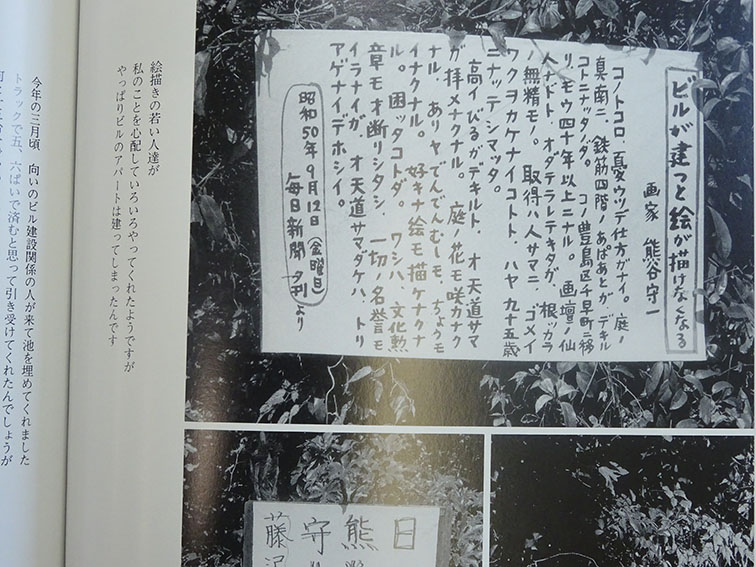 ビルが建つと絵が描けなくなる
画家 熊谷守一
コノトコロ、憂ウツデ仕方がナイ。庭ノ
真南ニ、鉄筋四階ノあぱあとがデキル
コトニナッタノダ。コノ豊島区千早町ニ移
リ、モウ四十年以上ニナル。画壇ノ仙
人ナドト、オダテラレテキタガ、根ッカラ
ノ無精モノ。取得ハ人サマニ、ゴメイ
ワクヲカケナイコトト、ハヤ九十五歳
ニナッテシマッタ。
高イびるがデキルト、オ天道サマ
が拝メナクナル。庭ノ花モ咲カナク
ナル。ありヤでんでんむしモ、ちょうモ
イナクナル。好キナ絵モ描ケナクナ
ル。困ッタコトダ。ワシハ、文化勲
章モオ断リシタシ、一切ノ名誉モ
イラナイガ、オ天道サマダケハ、トリ
アゲナイデホシイ。
昭和50年9月12日(金曜日)
毎日新聞 夕刊より
日
熊
守
藤
絵描きの若い人達が
私のことを心配していろいろやってくれたようですが
やっぱりビルのアパートは建ってしまったんです
今年の三月頃 向いのビル建設関係の人が来て池を埋めてくれました
トラックで五、六ぱいで済むと思って引き受けてくれたんでしょうが